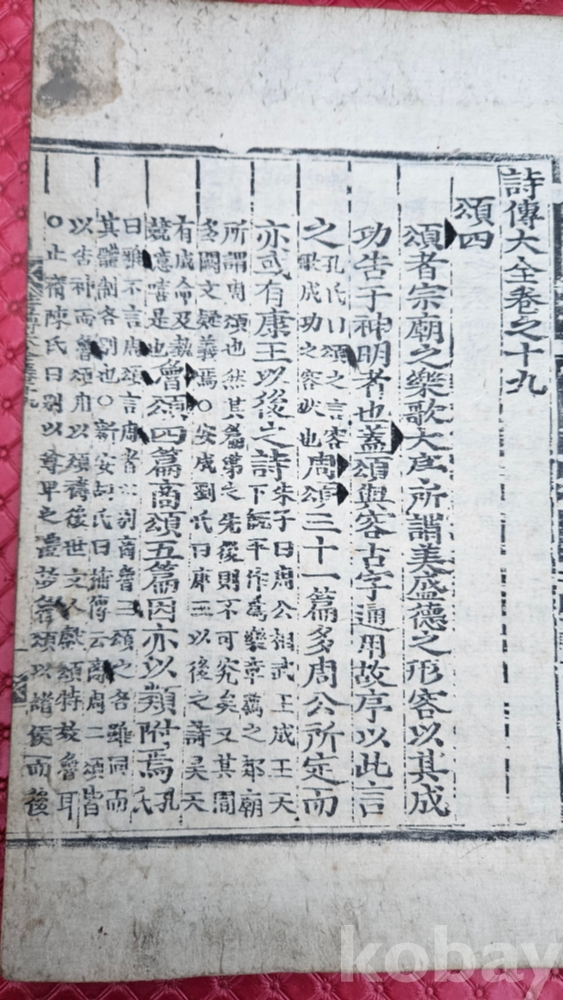 詩傳大全卷之十九
頌四
頌者宗廟之樂歌大序所謂美盛德之形容以其成
功告于神明者也蓋頌與容古字通用故序以此言
之孔氏曰頌之言容歌成功之容狀也周頌三十一篇多周公所定而
亦或有康王以後之詩朱子曰周公相武王成王天下既平作爲樂章薦之郊廟
所謂周頌也然其篇第之先後則不可究矣又其間
多闕文疑義焉○安成劉氏曰康王以後之詩昊天
有成命及執競意嘻是也魯頌四篇商頌五篇因亦以類附焉孔氏
曰雖不言周頌言周者以別商魯三頌之名雖同而
其體制各別也○新安胡氏曰傳云商周二頌皆
以告神而魯頌用以頌禱後世文人獻頌特效魯耳
○止齋陳氏曰別以尊卑之禮故魯頌以諸侯而後
kobay